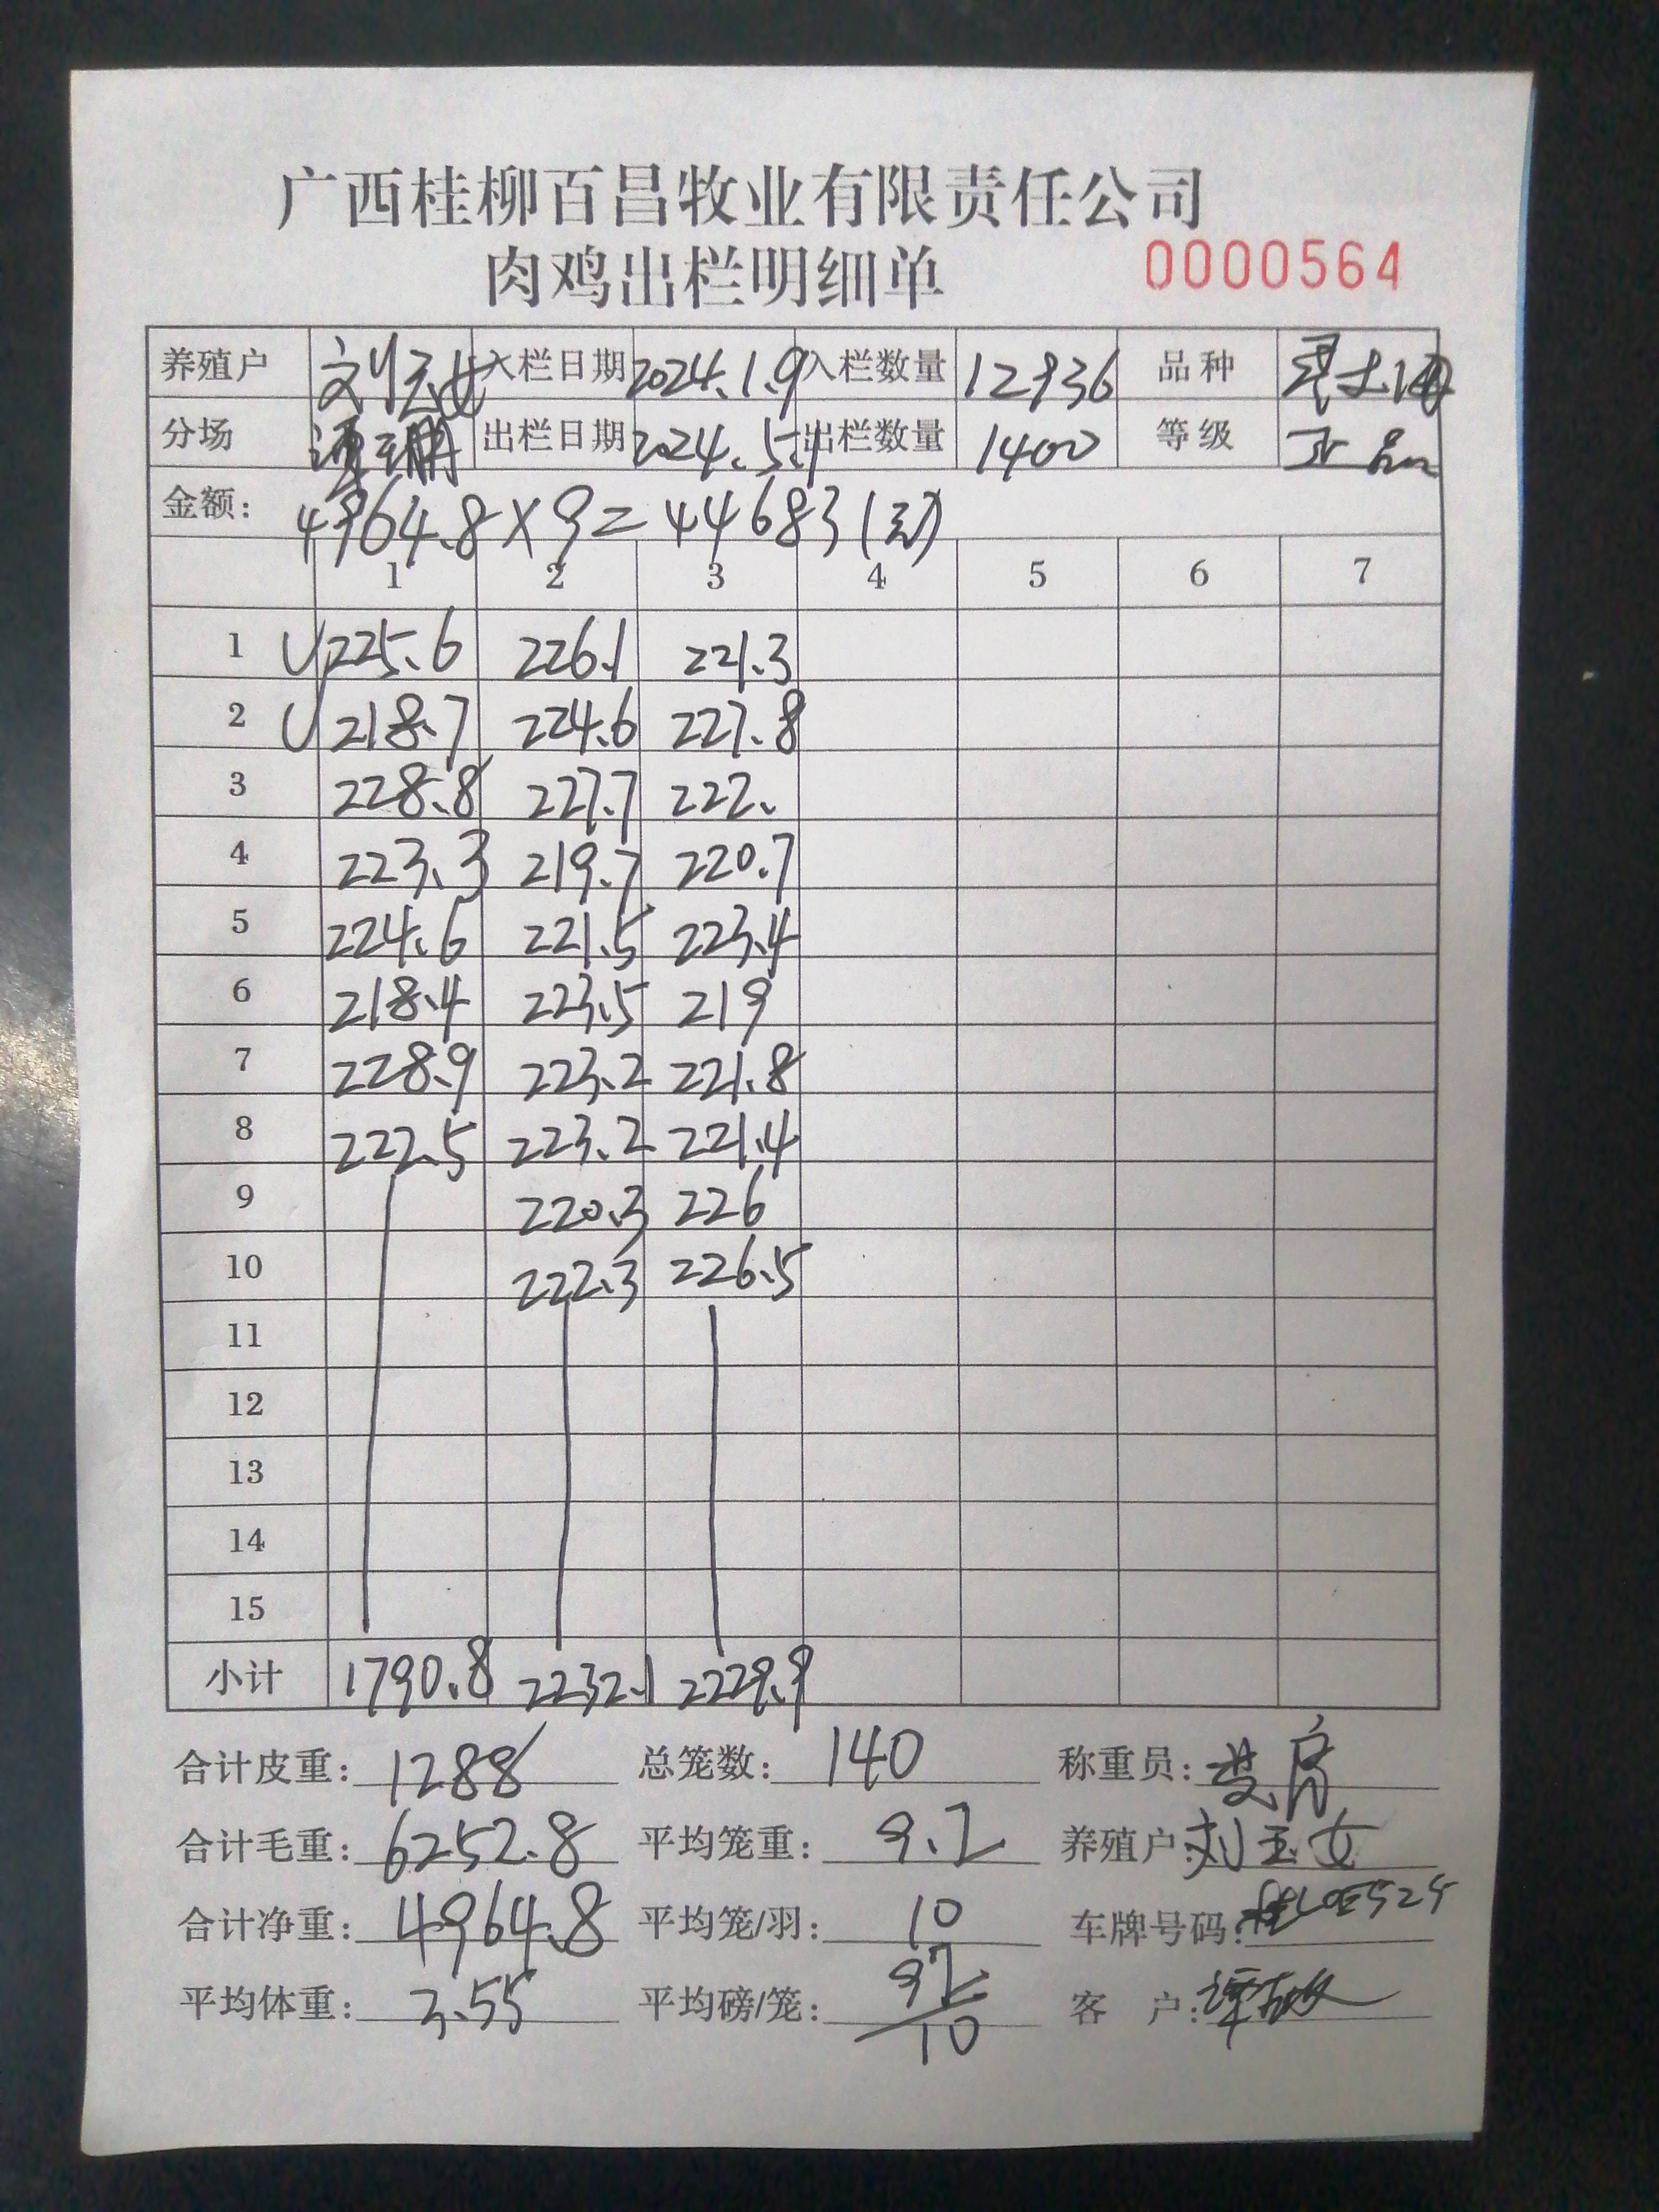 广西桂柳百昌牧业有限责任公司
肉鸡出栏明细单 0000564
养殖户 刘玉女 入栏日期 2024.1.9 入栏数量 12936 品种
分场 出栏日期 2024.5.1 出栏数量 1400 等级 正品
金额: 4964.8×9=44683
1 2 3 4 5 6 7
1 225.6 226.1 221.3
2 218.7 224.6 227.8
3 228.8 227.7 222.
4 223.3 219.7 220.7
5 224.6 221.5 223.4
6 218.4 223.5 219
7 228.9 223.2 221.8
8 222.5 223.2 221.4
9 220.3 226
10 222.3 226.5
11
12
13
14
15
小计 1790.8 2232.1 2229.9
合计皮重: 1288 总笼数: 140 称重员:
合计毛重: 6252.8 平均笼重: 9.2 养殖户: 刘玉女
合计净重: 4964.8 平均笼/羽: 10 车牌号码: 桂L0E525
平均体重: 3.55 平均磅/笼: 92/10 客户: 谭敏